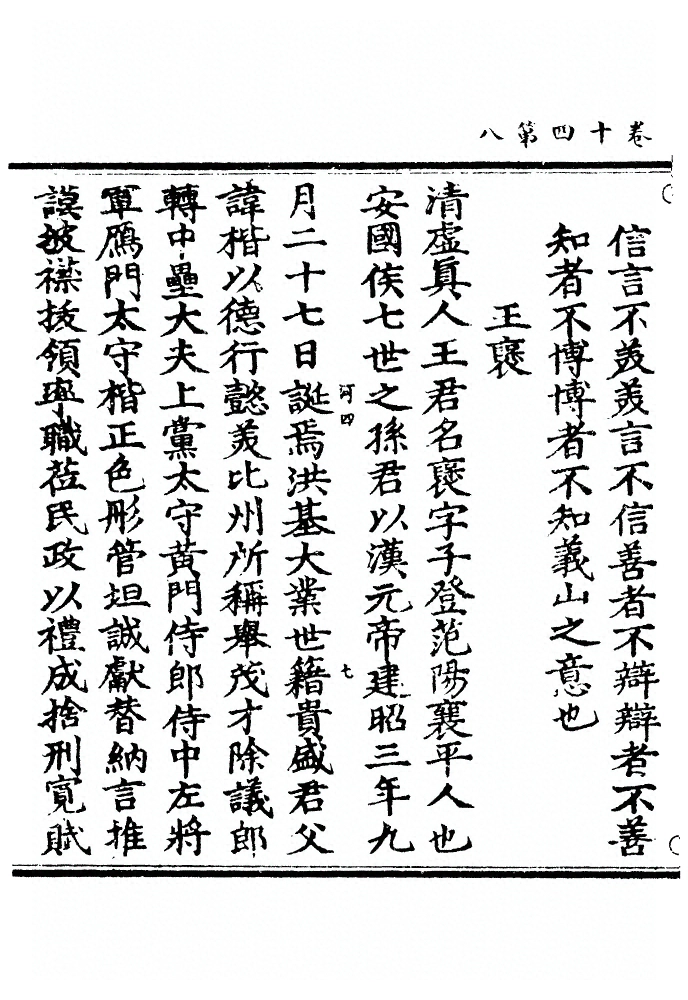 卷十四第八
信言不美美言不信善者不辯辯者不善
知者不博博者不知義山之意也
王褒
清虛真人王君名褒字子登范陽襄平人也
安國侯七世之孫君以漢元帝建昭三年九
河四
七
月二十七日誕焉洪基大業世籍貴盛君父
諱楷以德行懿美比州所稱舉茂才除議郎
轉中壘大夫上黨太守黃門侍郎侍中左將
軍鴈門太守楷正色彤管坦誠獻替納言推
謨披襟接領寧職莅民政以禮成捨刑寬賦